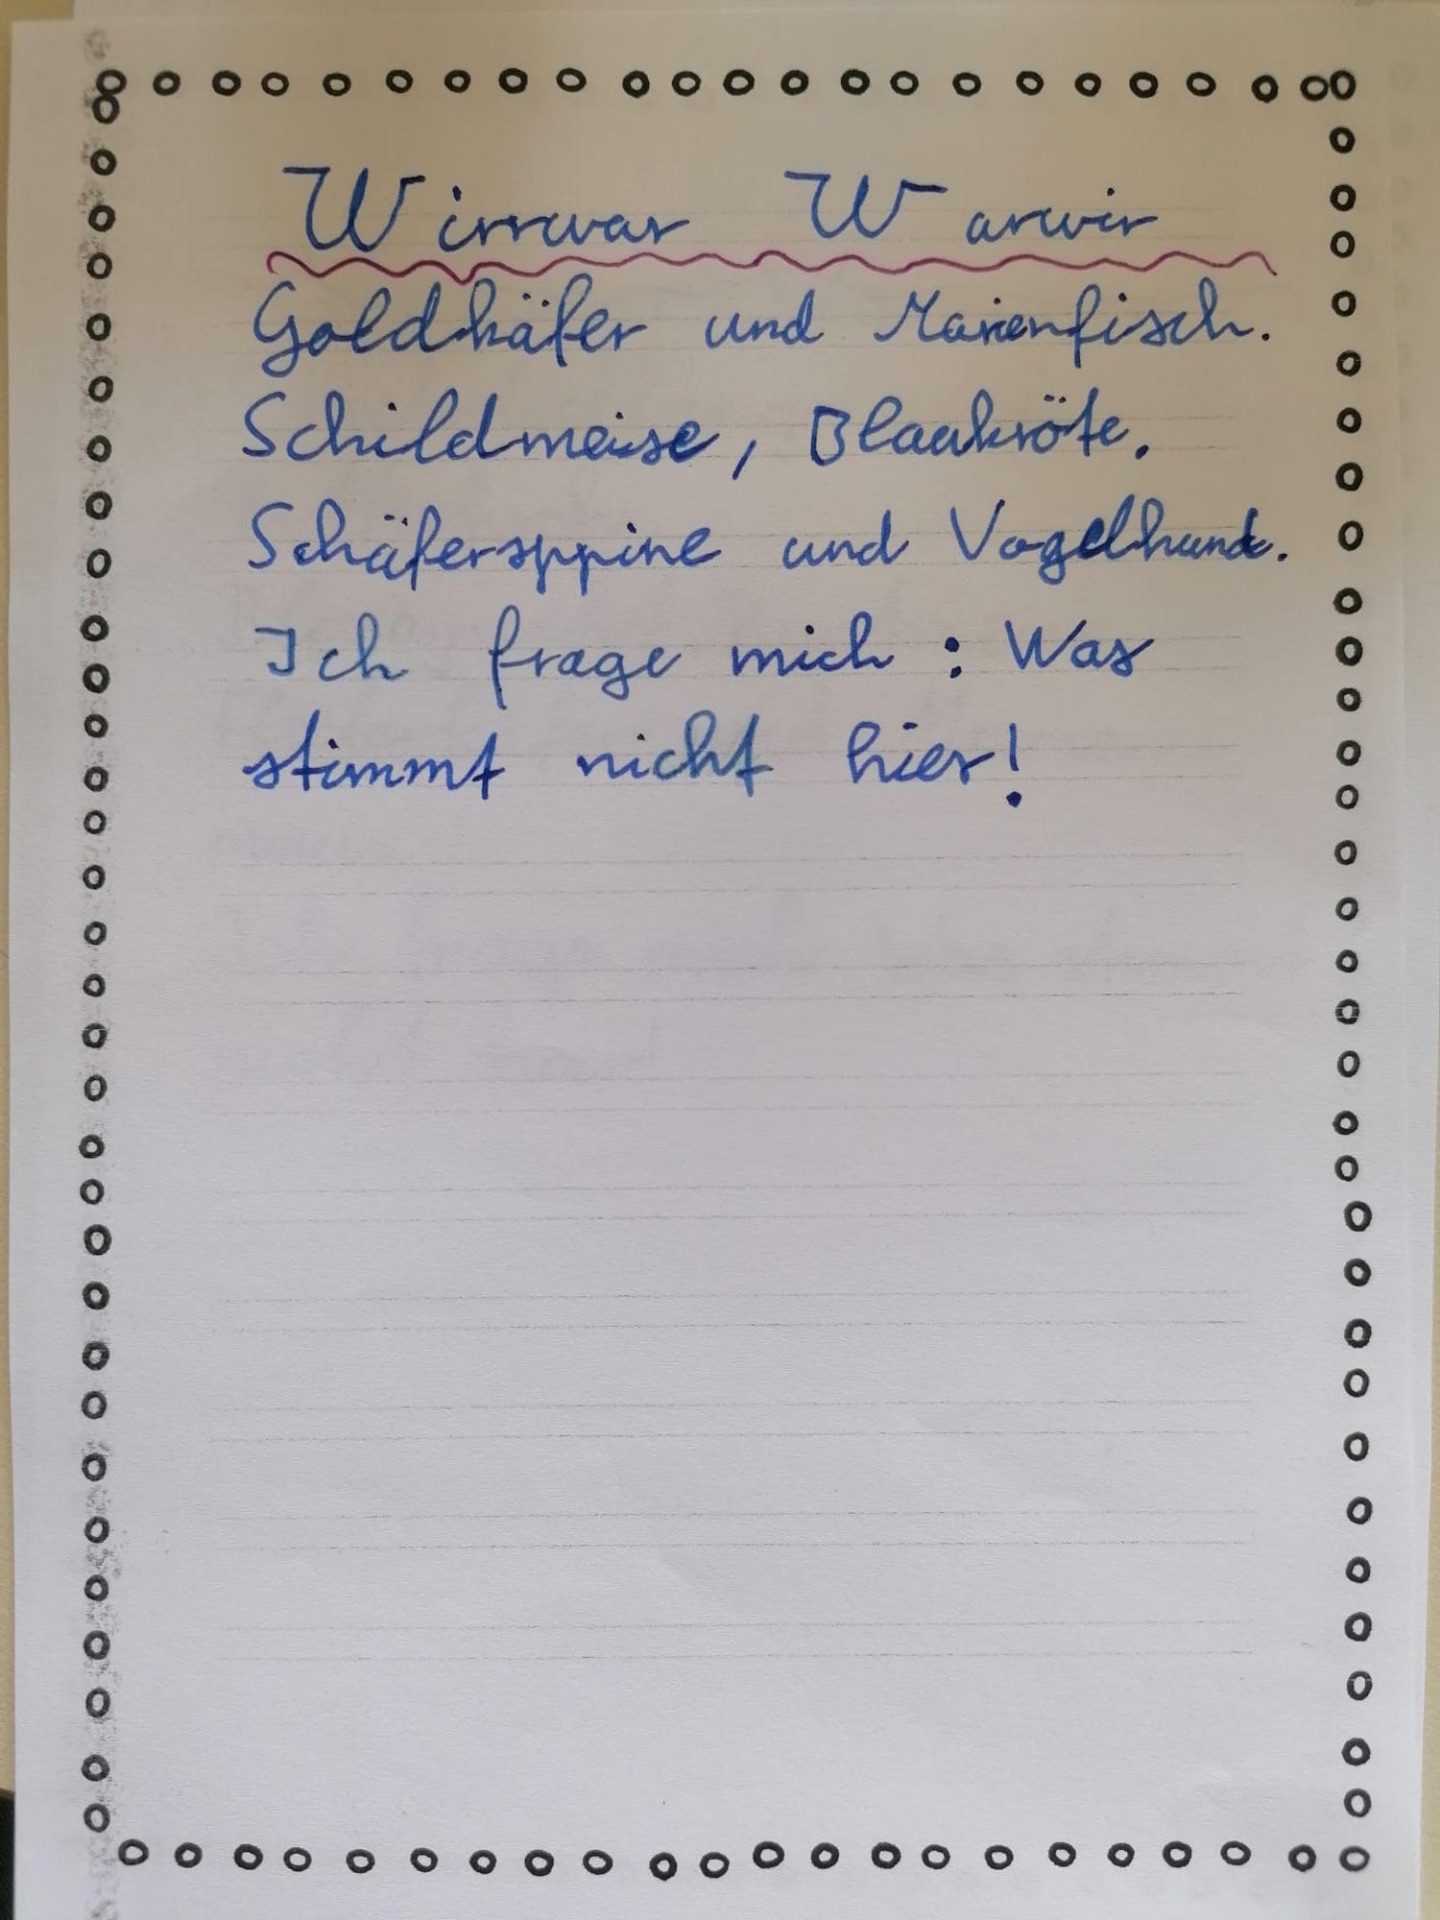 Wirrwar Warwir
Goldkäfer und Marienfisch.
Schildmeise, Blaukröte.
Schäfersppine und Vogelhund.
Ich frage mich: Was
stimmt nicht hier!